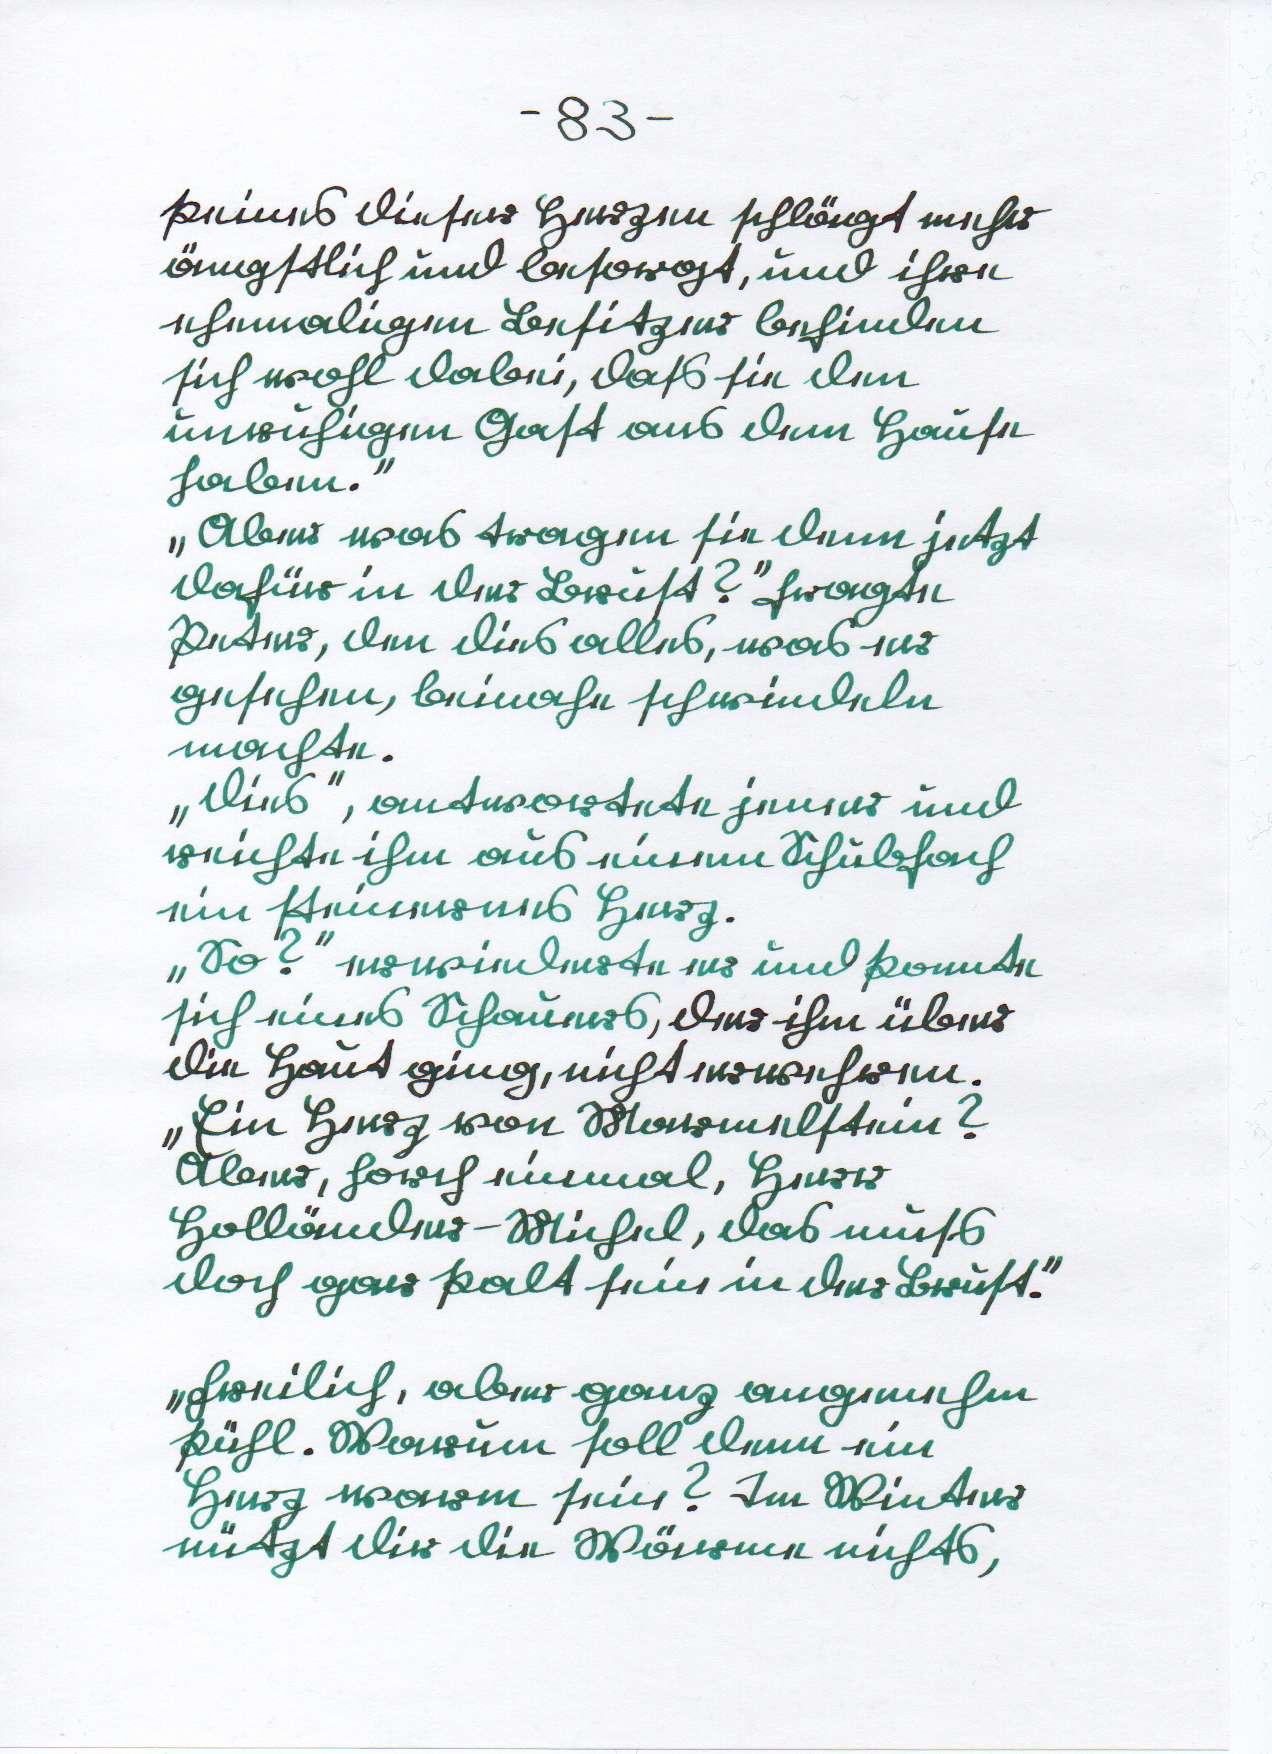 -83-
keines dieser Herzen schlägt mehr
ängstlich und besorgt, und ihre
ehemaligen Besitzer befinden
sich wohl dabei, dass sie den
unruhigen Gast aus dem Hause
haben."
„Aber was tragen sie denn jetzt
dafür in der Brust?" fragte
Peter, den dies alles, was er
gesehen, beinahe schwindeln
machte.
„Dies", antwortete jener und
reichte ihm aus einem Schubfach
ein steinernes Herz.
„So?" erwiderte er und konnte
sich eines Schauers, der ihm über
die Haut ging, nicht erwehren.
„Ein Herz von Marmelstein?
Aber, horch einmal, Herr
Holländer-Michel, das muss
doch gar kalt sein in der Brust."
„Freilich, aber ganz angenehm
kühl. Warum soll denn ein
Herz warm sein? Im Winter
nützt dir die Wärme nichts,